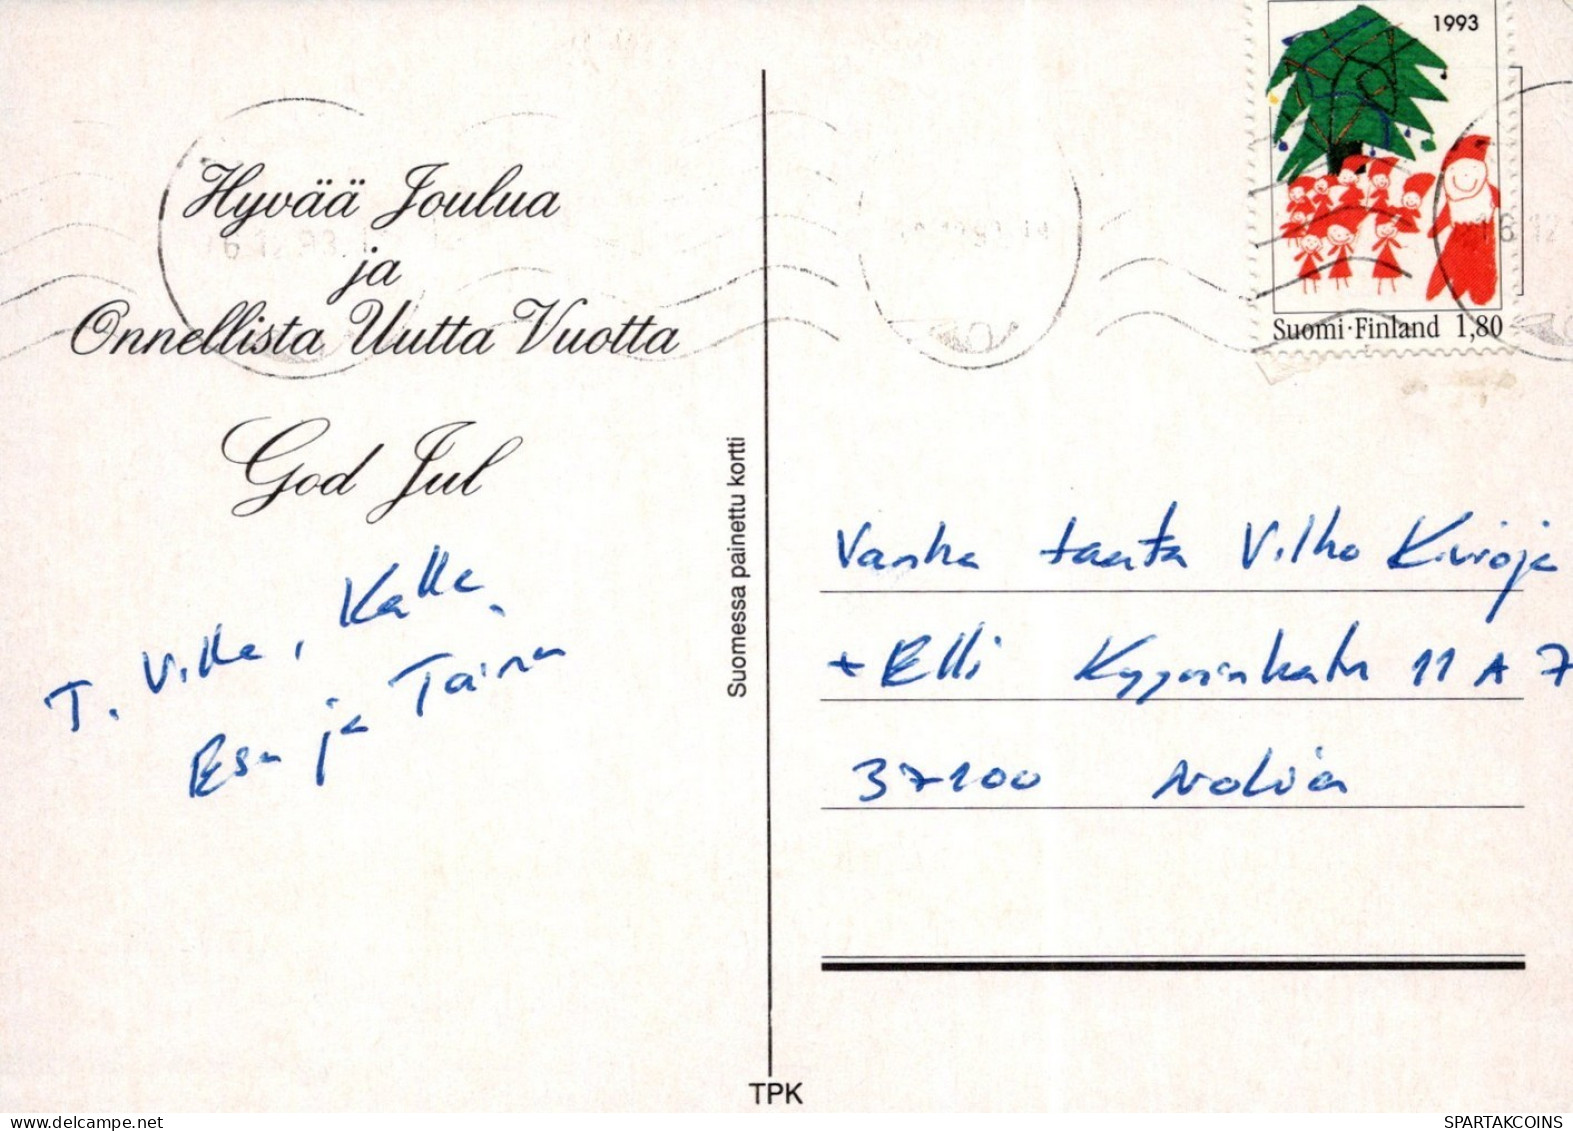 1993
Hyvää Joulua
ja
Onnellista Uutta Vuotta
God Jul
Suomi·Finland 1,80
16.12.93
16 12
T. Ville, Kalle,
Esa ja Taina
Suomessa painettu kortti
Vanha taata Vilho Kivioja
+ Elli 11 A 7
37100 Nokia
TPK
SPARTAKCOINS